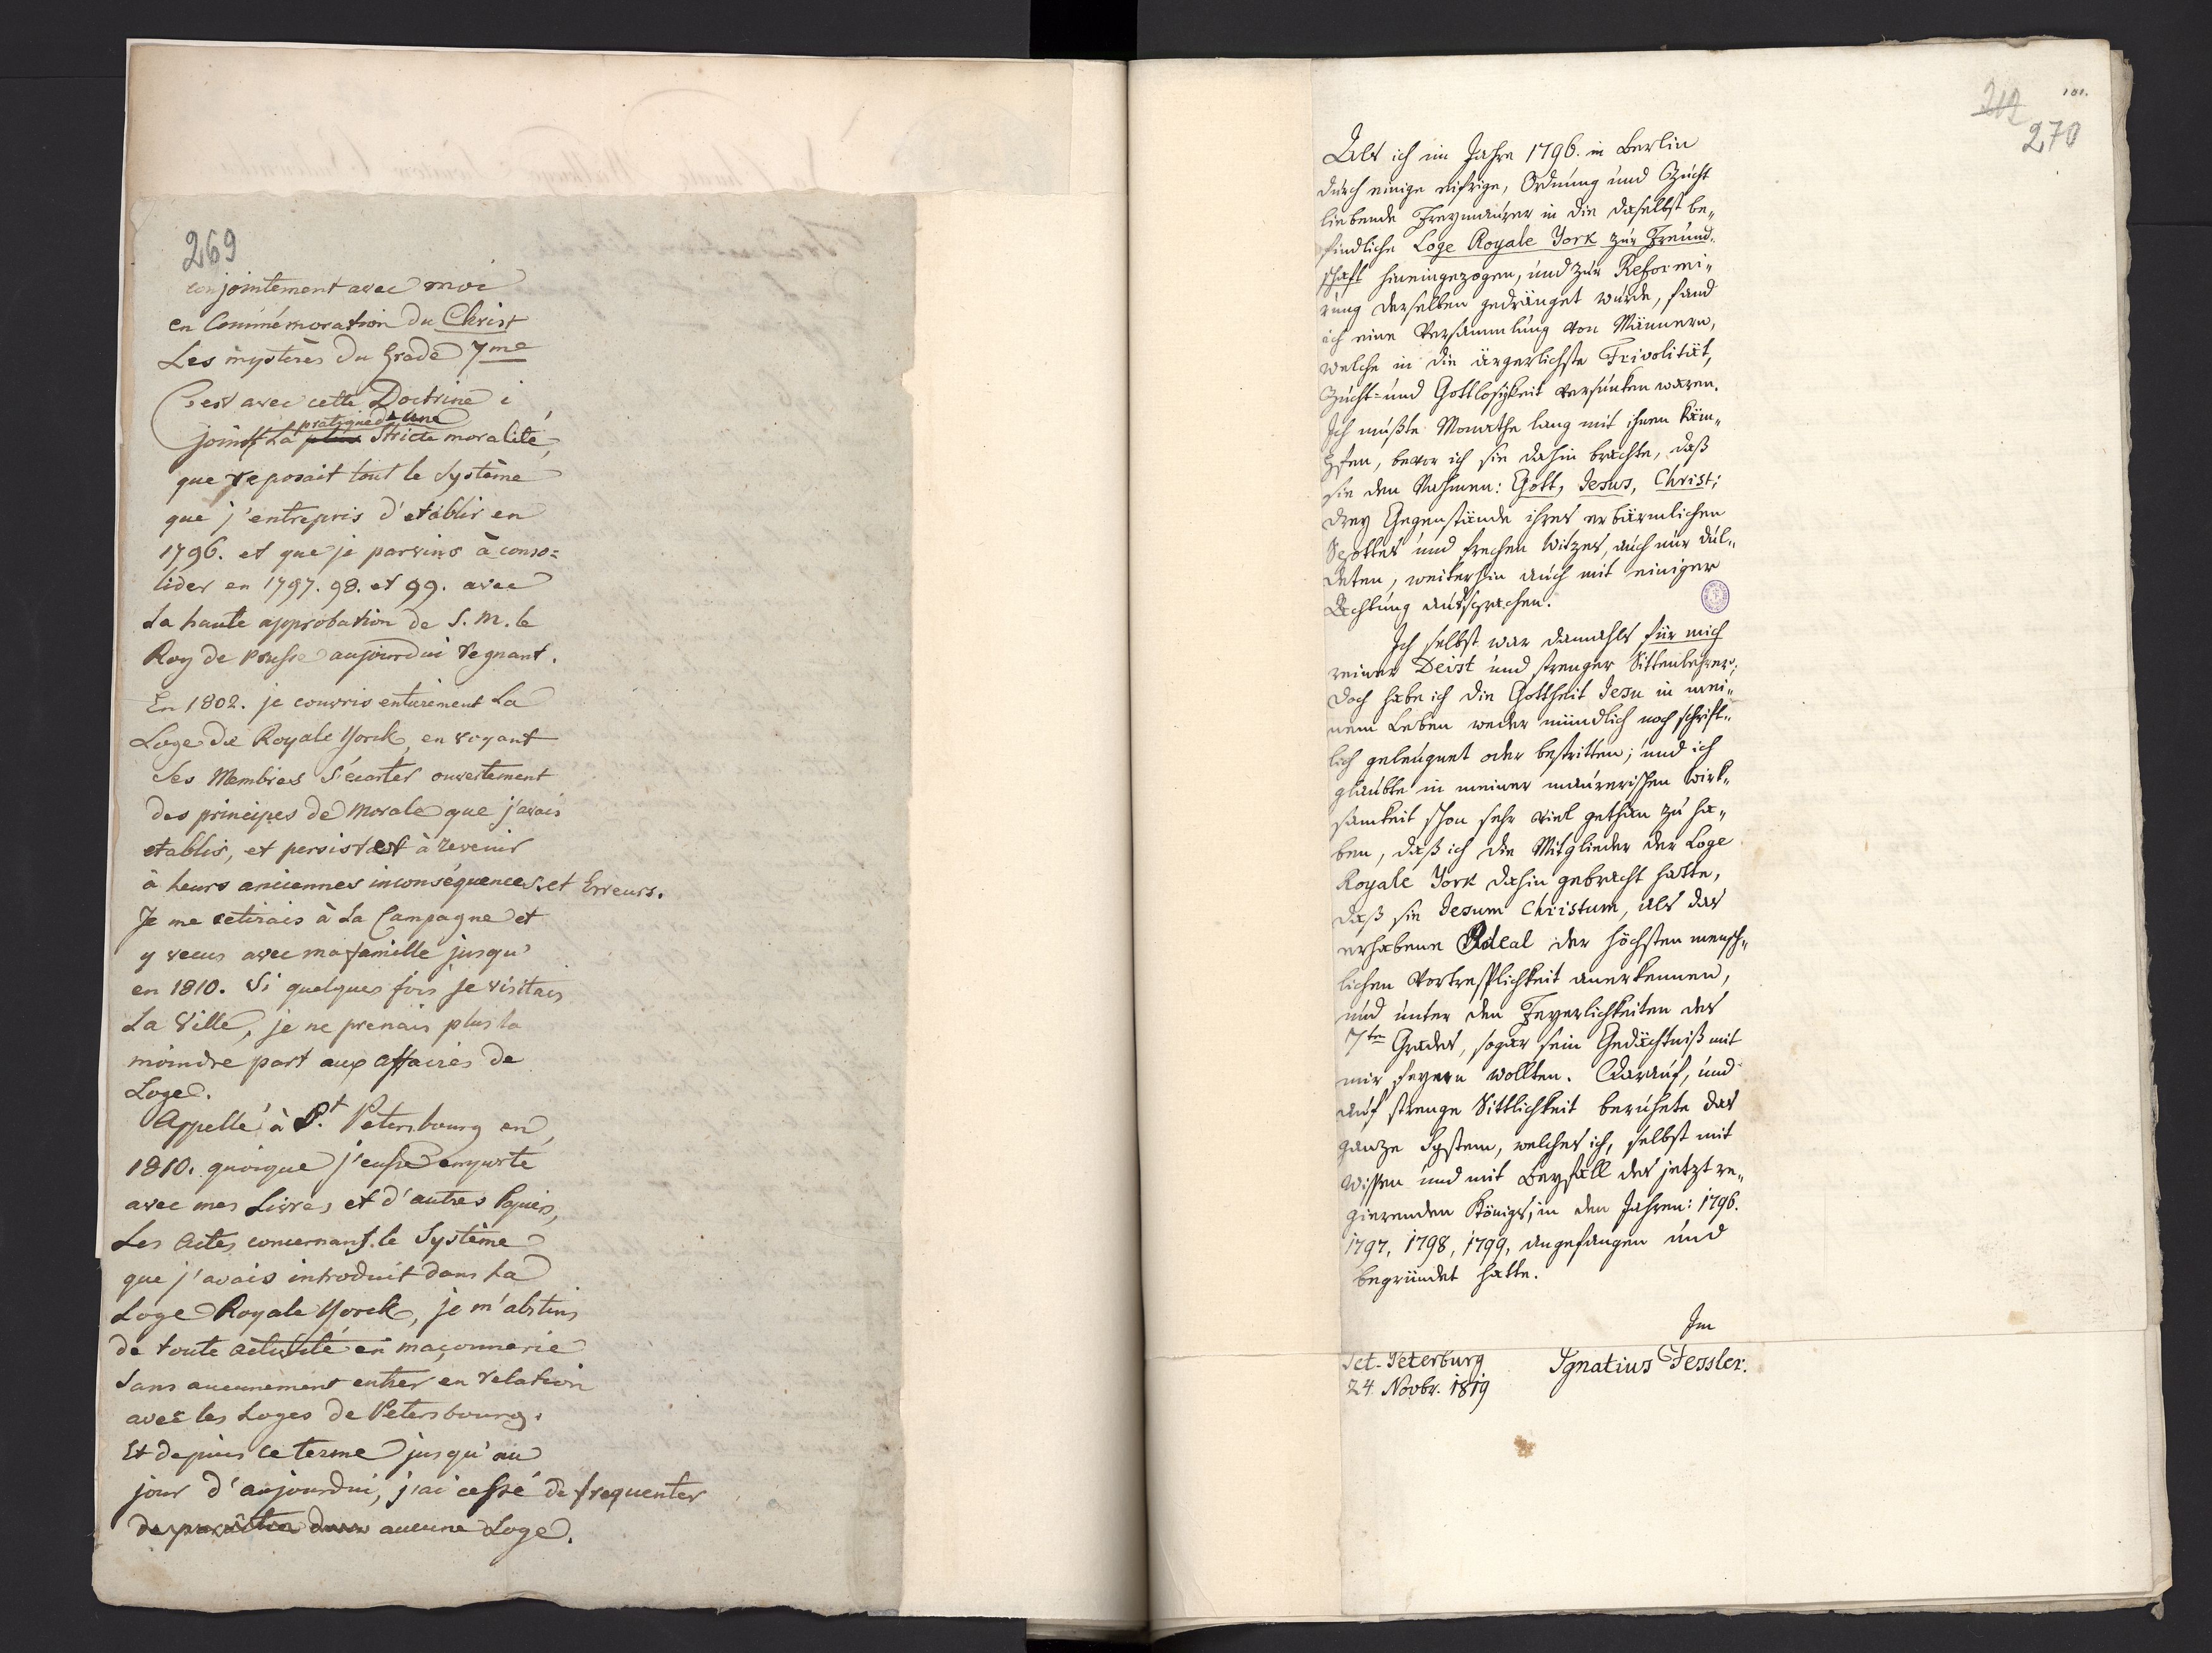 269
conjointement avec moi
en Commémoration du Christ
Les mystères du Grade 7me
C'est avec cette Doctrine i
pratique d'une
joint La plus Stricte moralité,
que reposait tout le Système
que j'entrepris d'etablir en
1796. et que je parvins à conso=
lider en 1797. 98. et 99. avec
la haute approbation de S. M. le
Roy de Prusse aujourdui regnant.
En 1802. je couvris entierement La
Loge de Royale Yorck, en voyant
Ses Membres s'écarter ouvertement
des principes de Morale que j'avais
etablis, et persistant à revenir
à leurs anciennes inconséquences et Erreurs.
Je me retirais à La Campagne et
y vecus avec ma famille jusqu'
en 1810. Si quelques fois je visitais
La Ville, je ne prenais plus la
moindre part aux affaires de
Loge.
Appellé à St. Petersbourg en
1810. quoique j'eusse emporté
avec mes Livres et d'autres Papiers,
Les Actes concernant le Système
que j'avais introduit dans La
Loge Royale Yorck, je m'abstins
de toute activité en maçonnerie
sans aucunement entrer en relation
avec les Loges de Petersbourg.
Et depuis ce terme jusqu'au
jour d'aujourdui, j'ai cessé de frequenter
de paraitre dans aucune Loge.
212
101.
270
Als ich im Jahre 1796. in Berlin
durch einige eifrige, Ordnung und Zucht
liebende Freymaurer in die daselbst be„
findliche Loge Royale York zur Freund„
schaft hineingezogen, und zur Reformi„
rung derselben gedränget wurde, fand
ich eine Versammlung von Männern,
welche in die ärgerlichste Frivolität,
Zucht= und Gottlosigkeit versunken waren.
Ich mußte Monathe lang mit ihnen käm„
pfen, bevor ich sie dahin brachte, daß
sie den Nahmen: Gott, Jesus, Christ;
drey Gegenstände ihres erbärmlichen
Spottes und frechen Witzes, auch nur dul„
deten, weiterhin auch mit einiger
Achtung aussprachen.
Ich selbst war damahls für mich
reiner Deist und strenger Sittenlehrer;
doch habe ich die Gottheit Jesu in mei„
nem Leben weder mündlich noch schrift„
lich geleugnet oder bestritten; und ich
glaubte in meiner maurerischen Wirk„
samkeit schon sehr viel gethan zu ha„
ben, daß ich die Mitglieder der Loge
Royale York dahin gebracht hatte,
daß sie Jesum Christum, als das
erhabene Ideal der höchsten mensch„
lichen Vortrefflichkeit anerkennen,
und unter den Feyerlichkeiten des
7ten Grades, sogar sein Gedächtniß mit
mir feyern wollten. Darauf, und
auf strenge Sittlichkeit beruhete das
ganze System, welches ich, selbst mit
Wissen und mit Beyfall des jetzt re„
gierenden Königs, in den Jahren: 1796.
1797, 1798, 1799, angefangen und
begründet hatte.
Sct-Peterburg
24. Novbr. 1819
Ignatius Fessler.